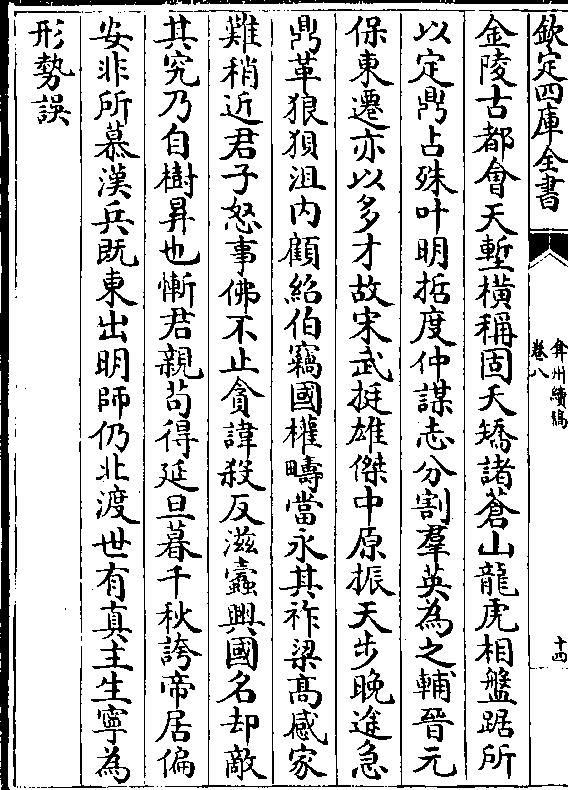 欽定四庫全書
弇州續稿
卷八
十四
金陵古都會天塹橫稱固夭矯諸蒼山龍虎相盤踞所
以定鼎占殊叶明哲度仲謀志分割羣英為之輔晉元
保東遷亦以多才故宋武挺雄傑中原振天步晚途急
鼎革狼狽沮內顧紹伯竊國權疇當永其祚梁髙感家
難稍近君子怒事佛不止貪諱殺反滋蠧興國名却敵
其究乃自樹昇也慚君親茍得延旦暮千秋誇帝居偏
安非所慕漢兵既東出明師仍北渡世有真主生寧為
形勢誤